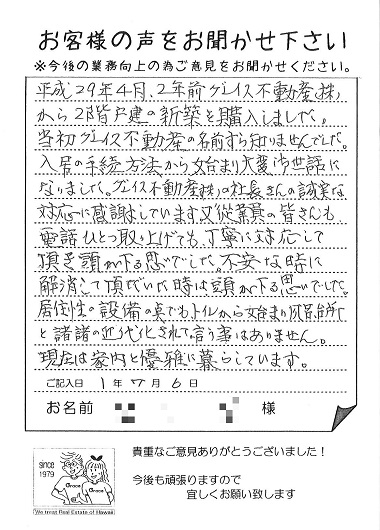 お客様の声をお聞かせ下さい
※今後の業務向上の為ご意見をお聞かせください。
平成29年4月、2年前グレイス不動産(株)
から2階戸建の新築を購入しました。
当初グレイス不動産の名前すら知りませんでした。
入居の手続方法から始まり大変御世話に
なりました。グレイス不動産(株)の社長さんの誠実な
対応に感謝しています又従業員の皆さんも、
電話ひとつ取り上げても、丁寧に対応して
頂き頭が下る思いでした。不安な時に
解消して頂だいた時は頭が下る思いでした。
居住性の設備の点でもトイレから始まり
と諸諸の近代化されて言う事はありません。
現在は家内と優雅に暮らしています。
ご記入日 1年7月6日
お名前 様
貴重なご意見ありがとうございました!
今後も頑張りますので
宜しくお願い致します
since
1979
Grace
Grace
We treat Real Estate of Hawaii